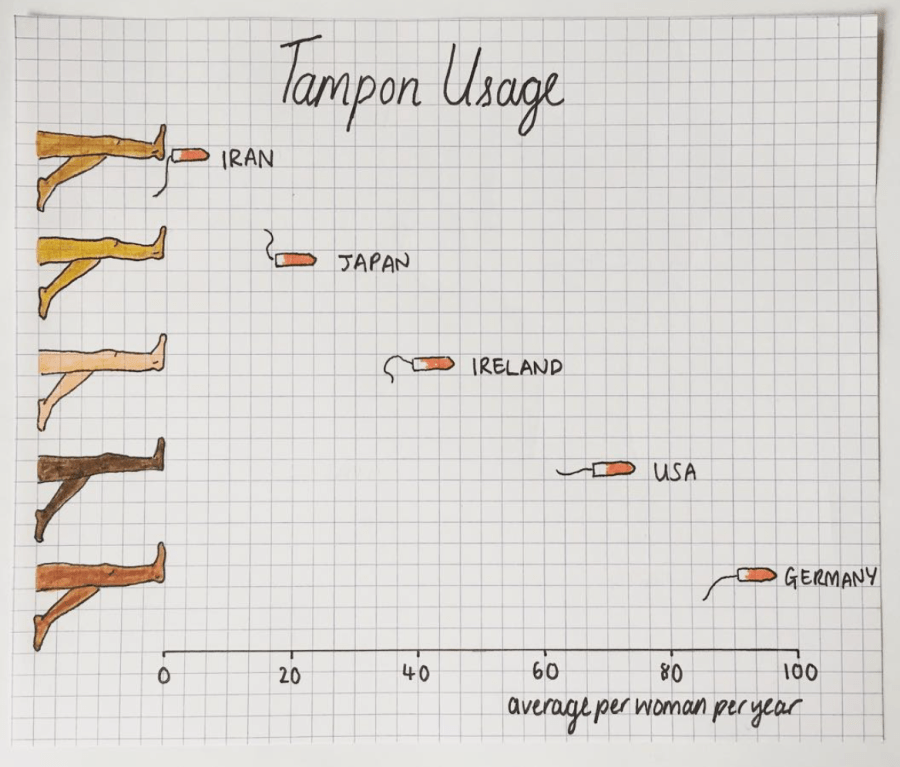 Tampon Usage
IRAN
JAPAN
IRELAND
USA
GERMANY
0 20 40 60 80 100
average per woman per year